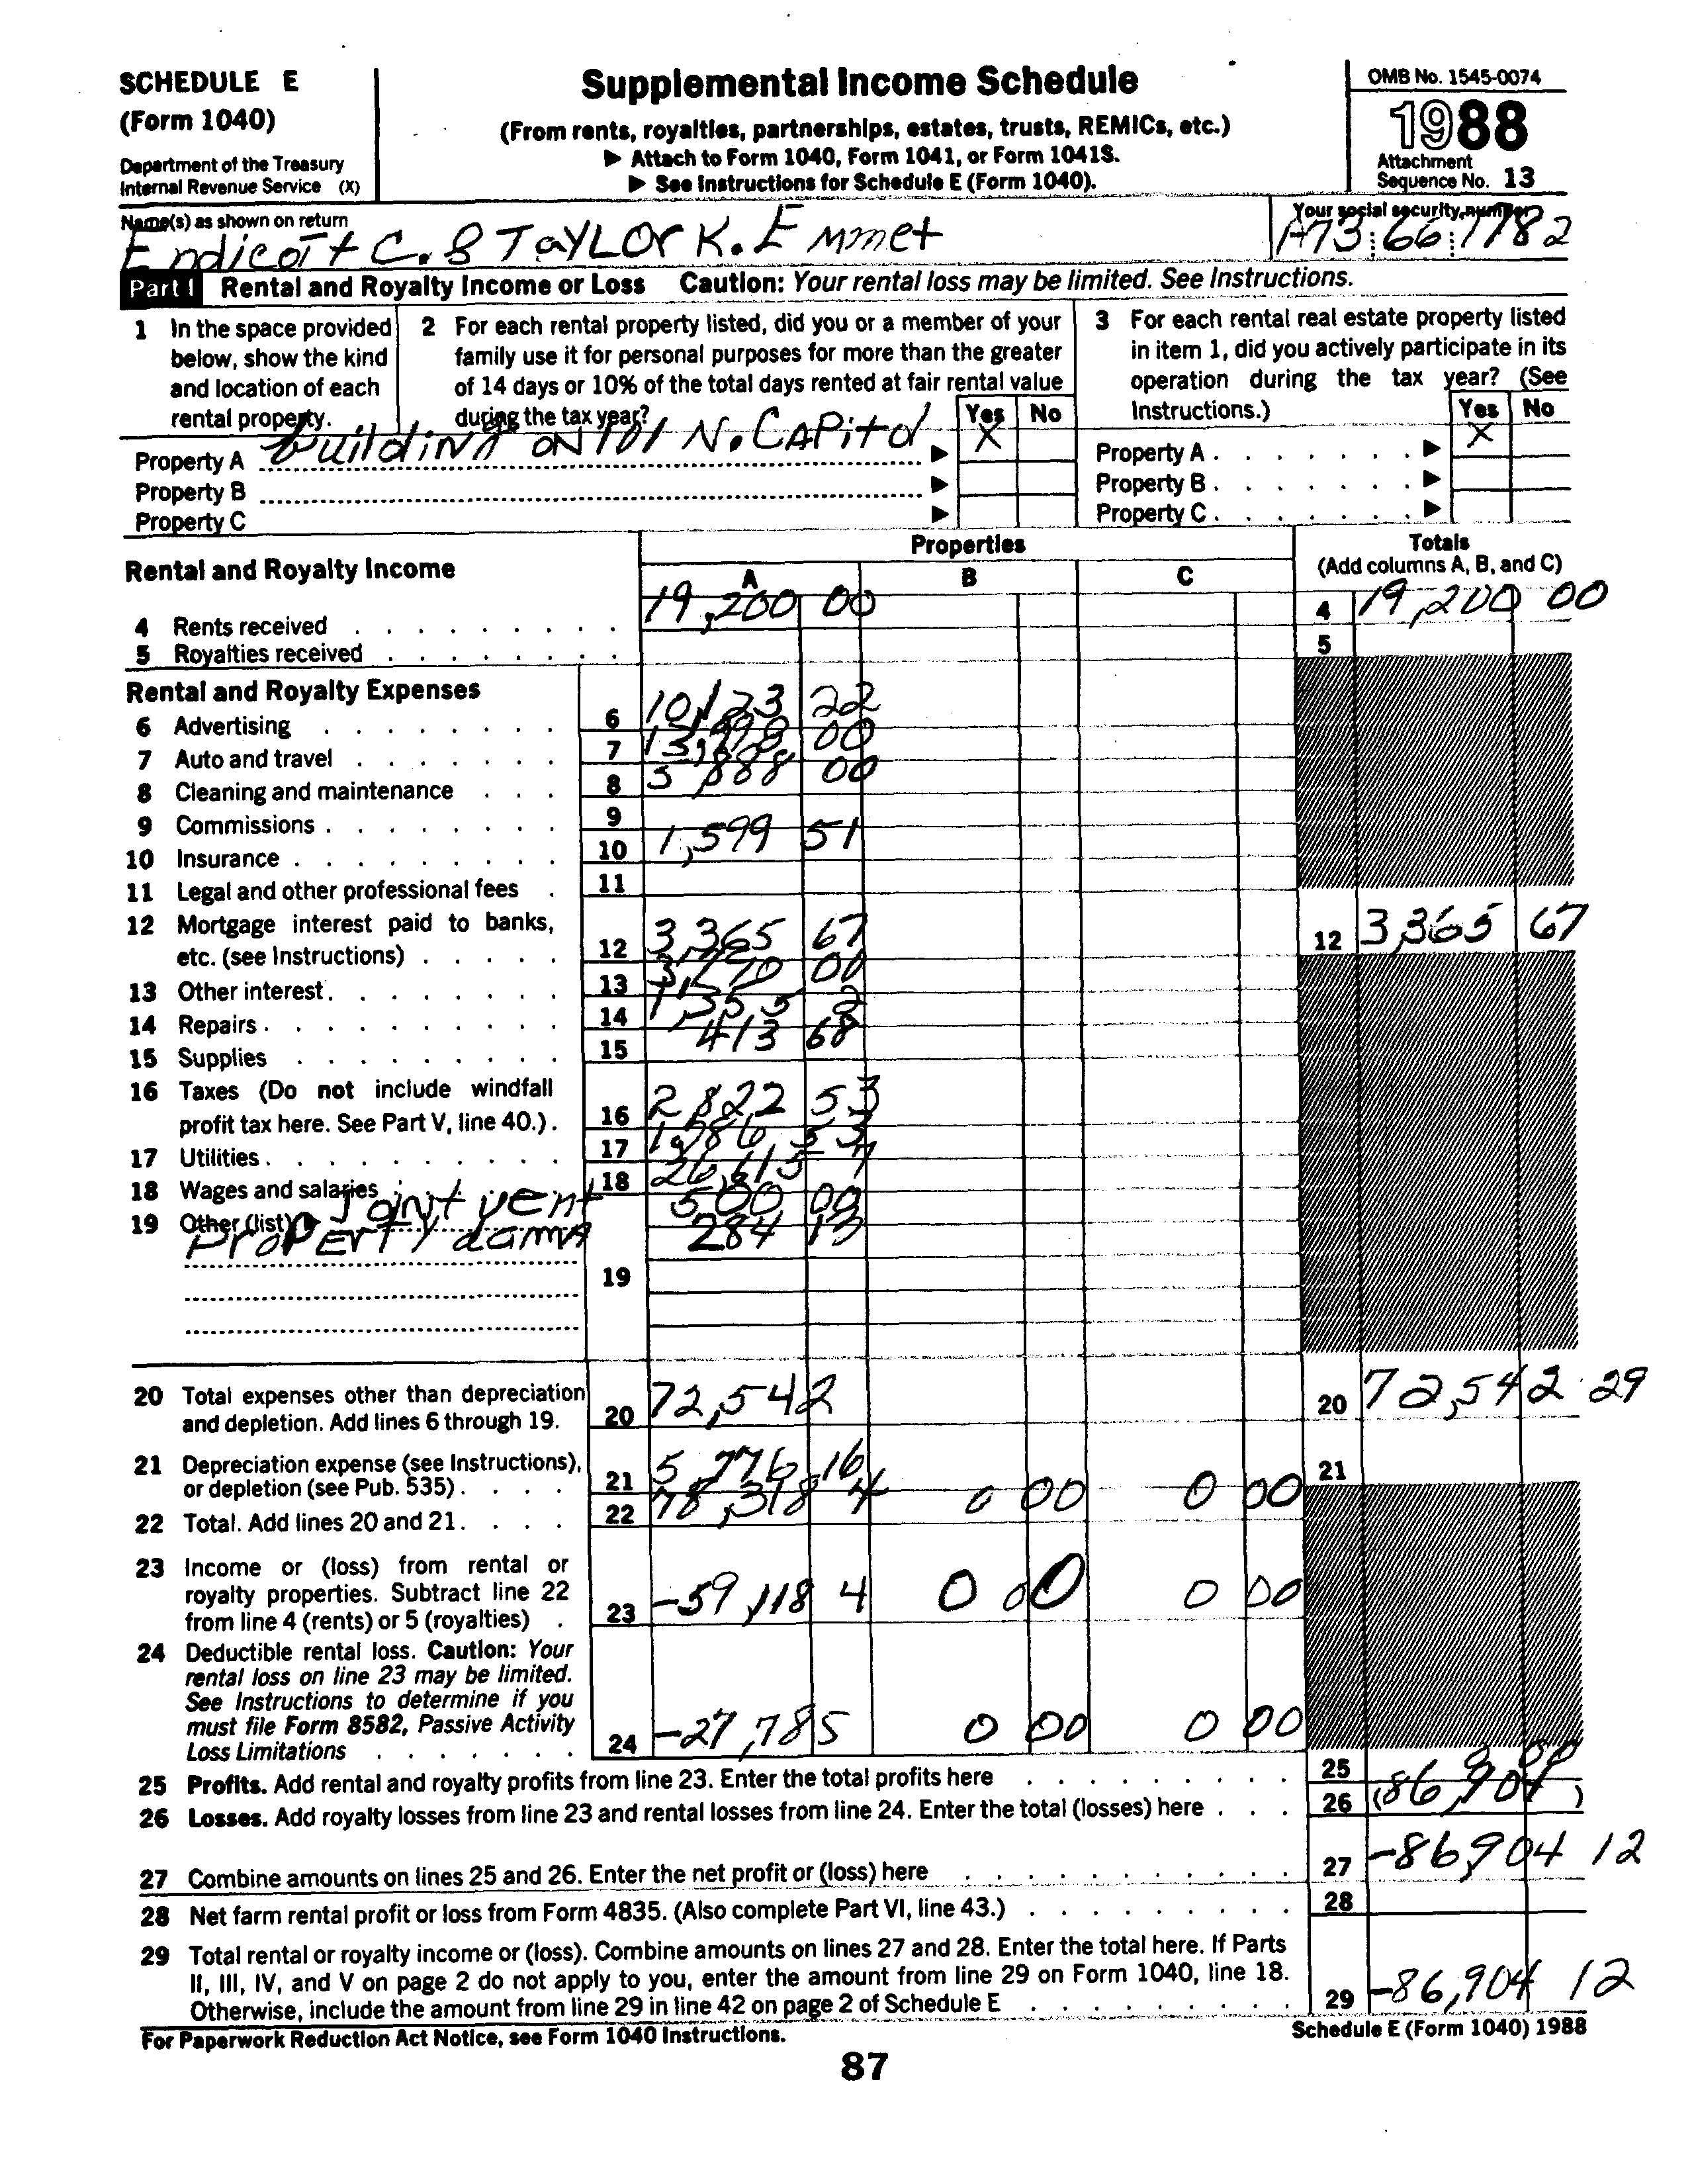 SCHEDULE E
(Form 1040)
Department of the Treasury
Internal Revenue Service (X)
Supplemental Income Schedule
(From rents, royalties, partnerships, estates, trusts, REMICs, etc.)
▶ Attach to Form 1040, Form 1041, or Form 1041S.
▶ See Instructions for Schedule E (Form 1040).
OMB No. 1545-0074
1988
Attachment
Sequence No. 13
Name(s) as shown on return
Endicott C. & TaYLOr K. Emmet
Your social security number
A73 66 7782
Part I Rental and Royalty Income or Loss Caution: Your rental loss may be limited. See Instructions.
1 In the space provided
below, show the kind
and location of each
rental property.
2 For each rental property listed, did you or a member of your
family use it for personal purposes for more than the greater
of 14 days or 10% of the total days rented at fair rental value
during the tax year?
Yes No
3 For each rental real estate property listed
in item 1, did you actively participate in its
operation during the tax year? (See
Instructions.)
Yes No
Property A building ON 101 N. CAPitol ▶ X
Property B ▶
Property C ▶
Property A ▶ X
Property B ▶
Property C ▶
Rental and Royalty Income
Properties
A B C
Totals
(Add columns A, B, and C)
4 Rents received 19,200 00 4 19,200 00
5 Royalties received 5
Rental and Royalty Expenses
6 Advertising 6 10,123 22
7 Auto and travel 7 00
8 Cleaning and maintenance 8 888 00
9 Commissions 9
10 Insurance 10 1,599 51
11 Legal and other professional fees 11
12 Mortgage interest paid to banks,
etc. (see Instructions) 12 3,365 67 12 3,365 67
13 Other interest 13 00
14 Repairs 14 1,355 2
15 Supplies 15 413 68
16 Taxes (Do not include windfall
profit tax here. See Part V, line 40.) 16 2,822 53
17 Utilities 17 53
18 Wages and salaries 18 26,615 7
19 Other (list) ▶ Joint vent 500 00
PrOPErTy dama 284 13
19
20 Total expenses other than depreciation
and depletion. Add lines 6 through 19. 20 72,542 20 72,542 29
21 Depreciation expense (see Instructions),
or depletion (see Pub. 535) 21 5,776 16 21
22 Total. Add lines 20 and 21 22 78,318 4 0 00 0 00
23 Income or (loss) from rental or
royalty properties. Subtract line 22
from line 4 (rents) or 5 (royalties) 23 -59,118 4 0 00 0 00
24 Deductible rental loss. Caution: Your
rental loss on line 23 may be limited.
See Instructions to determine if you
must file Form 8582, Passive Activity
Loss Limitations 24 -27,785 0 00 0 00
25 Profits. Add rental and royalty profits from line 23. Enter the total profits here 25 0 00
26 Losses. Add royalty losses from line 23 and rental losses from line 24. Enter the total (losses) here 26 (86,904)
27 Combine amounts on lines 25 and 26. Enter the net profit or (loss) here 27 -86,904 12
28 Net farm rental profit or loss from Form 4835. (Also complete Part VI, line 43.) 28
29 Total rental or royalty income or (loss). Combine amounts on lines 27 and 28. Enter the total here. If Parts
II, III, IV, and V on page 2 do not apply to you, enter the amount from line 29 on Form 1040, line 18.
Otherwise, include the amount from line 29 in line 42 on page 2 of Schedule E 29 -86,904 12
For Paperwork Reduction Act Notice, see Form 1040 Instructions.
Schedule E (Form 1040) 1988
87